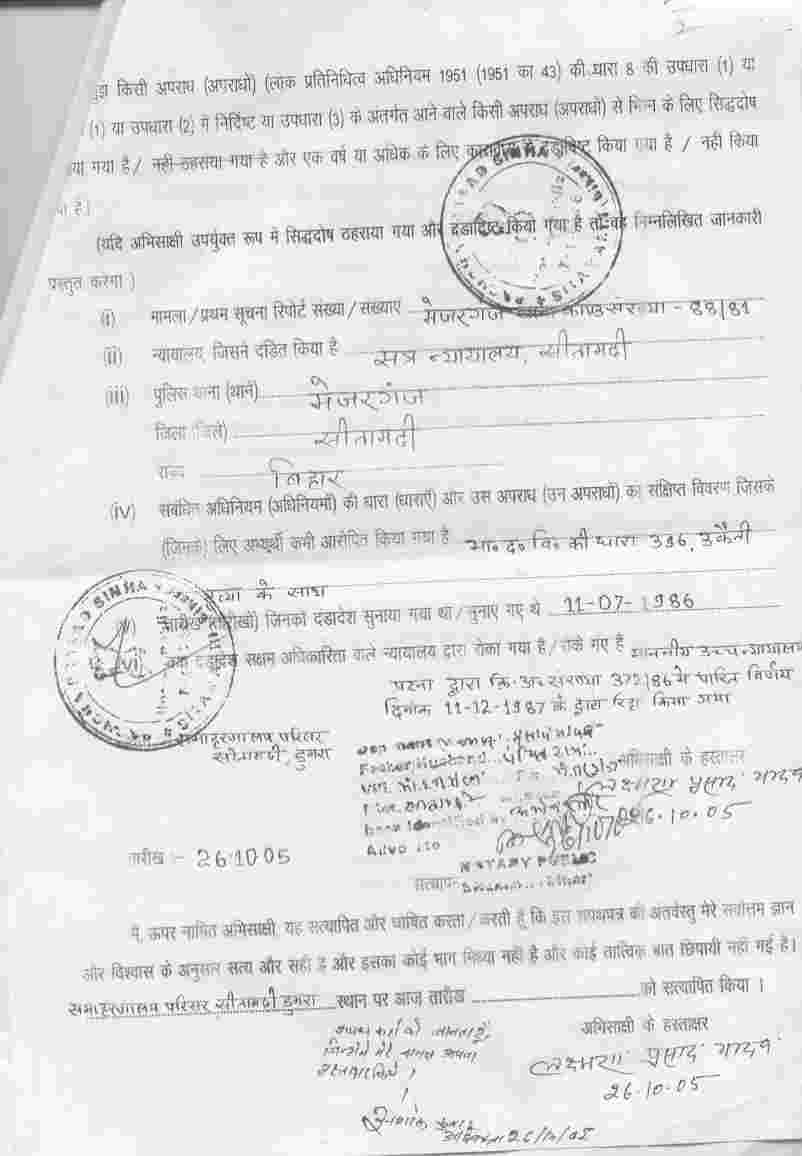 2
मुझे किसी अपराध (अपराधों) (लोक प्रतिनिधित्व अधिनियम 1951 (1951 का 43) की धारा 8 की उपधारा (1) या
(1) या उपधारा (2) में निर्दिष्ट या उपधारा (3) के अंतर्गत आने वाले किसी अपराध (अपराधों) से भिन्न के लिए सिद्धदोष
या गया है / नहीं ठहराया गया है और एक वर्ष या अधिक के लिए कारावास से दंडादिष्ट किया गया है / नहीं किया
या है।
(यदि अभिसाक्षी उपर्युक्त रूप में सिद्धदोष ठहराया गया और दंडादिष्ट किया गया है तो वह निम्नलिखित जानकारी
प्रस्तुत करेगा)
(i) मामला/प्रथम सूचना रिपोर्ट संख्या/संख्याएं मेजरगंज थाना काण्ड संख्या - 88/81
(ii) न्यायालय, जिसने दंडित किया है सत्र न्यायालय, सीतामढ़ी
(iii) पुलिस थाना (थाने) मेजरगंज
जिला (जिले) सीतामढ़ी
राज्य बिहार
(iv) संबंधित अधिनियम (अधिनियमों) की धारा (धाराएँ) और उस अपराध (उन अपराधों) का संक्षिप्त विवरण जिसके
(जिनके) लिए अभ्यर्थी कभी आरोपित किया गया है भा० द० वि० की धारा 396, डकैती
हत्या के साथ
तारीख (तारीखों) जिनको दंडादेश सुनाया गया था/सुनाए गए थे 11-07-1986
(vi) क्या दंडादेश सक्षम अधिकारिता वाले न्यायालय द्वारा रोका गया है/रोके गए हैं माननीय उच्च न्यायालय
पटना द्वारा क्रि. अ० संख्या 372/86 में पारित निर्णय
दिनांक 11-12-1987 के द्वारा रिहा किया गया
समाहरणालय परिसर
सीतामढ़ी, डुमरा
अभिसाक्षी के हस्ताक्षर
लक्ष्मण प्रसाद
26.10.05
तारीख :- 26.10.05
NOTARY PUBLIC
सत्यापन
मैं, ऊपर नामित अभिसाक्षी, यह सत्यापित और घोषित करता/करती हूँ कि इस शपथपत्र की अंतर्वस्तु मेरे सर्वोत्तम ज्ञान
और विश्वास के अनुसार सत्य और सही है और इसका कोई भाग मिथ्या नहीं है और कोई तात्विक बात छिपायी नहीं गई है।
समाहरणालय परिसर सीतामढ़ी डुमरा स्थान पर आज तारीख को सत्यापित किया।
अभिसाक्षी के हस्ताक्षर
लक्ष्मण प्रसाद
26.10.05
शपथ कर्ता को जानता हूँ,
जिन्होंने मेरे समक्ष अपना
हस्ताक्षर किये।
26/10/05